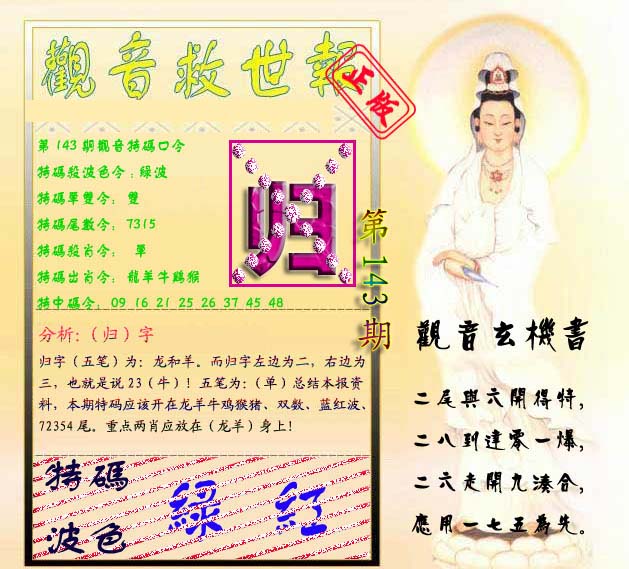 觀音救世報
正版
第143期觀音特碼口令
特碼殺波色令：綠波
特碼單雙令： 雙
特碼尾數令： 7315
特碼殺肖令： 單
特碼出肖令： 龍羊牛鷄猴
特中碼令： 09 16 21 25 26 37 45 48
归
第143期
分析:（归）字
归字（五笔）为：龙和羊。而归字左边为二，右边为
三，也就是说23（牛）！五笔为：（单）总结本报资
料，本期特码应该开在龙羊牛鸡猴猪、双数、蓝红波、
72354 尾。重点两肖应放在（龙羊）身上！
特碼
波色
綠 紅
觀音玄機書
二尾與六開得特，
二八到達零一爆，
二六走開九湊合，
應用一七五為先。